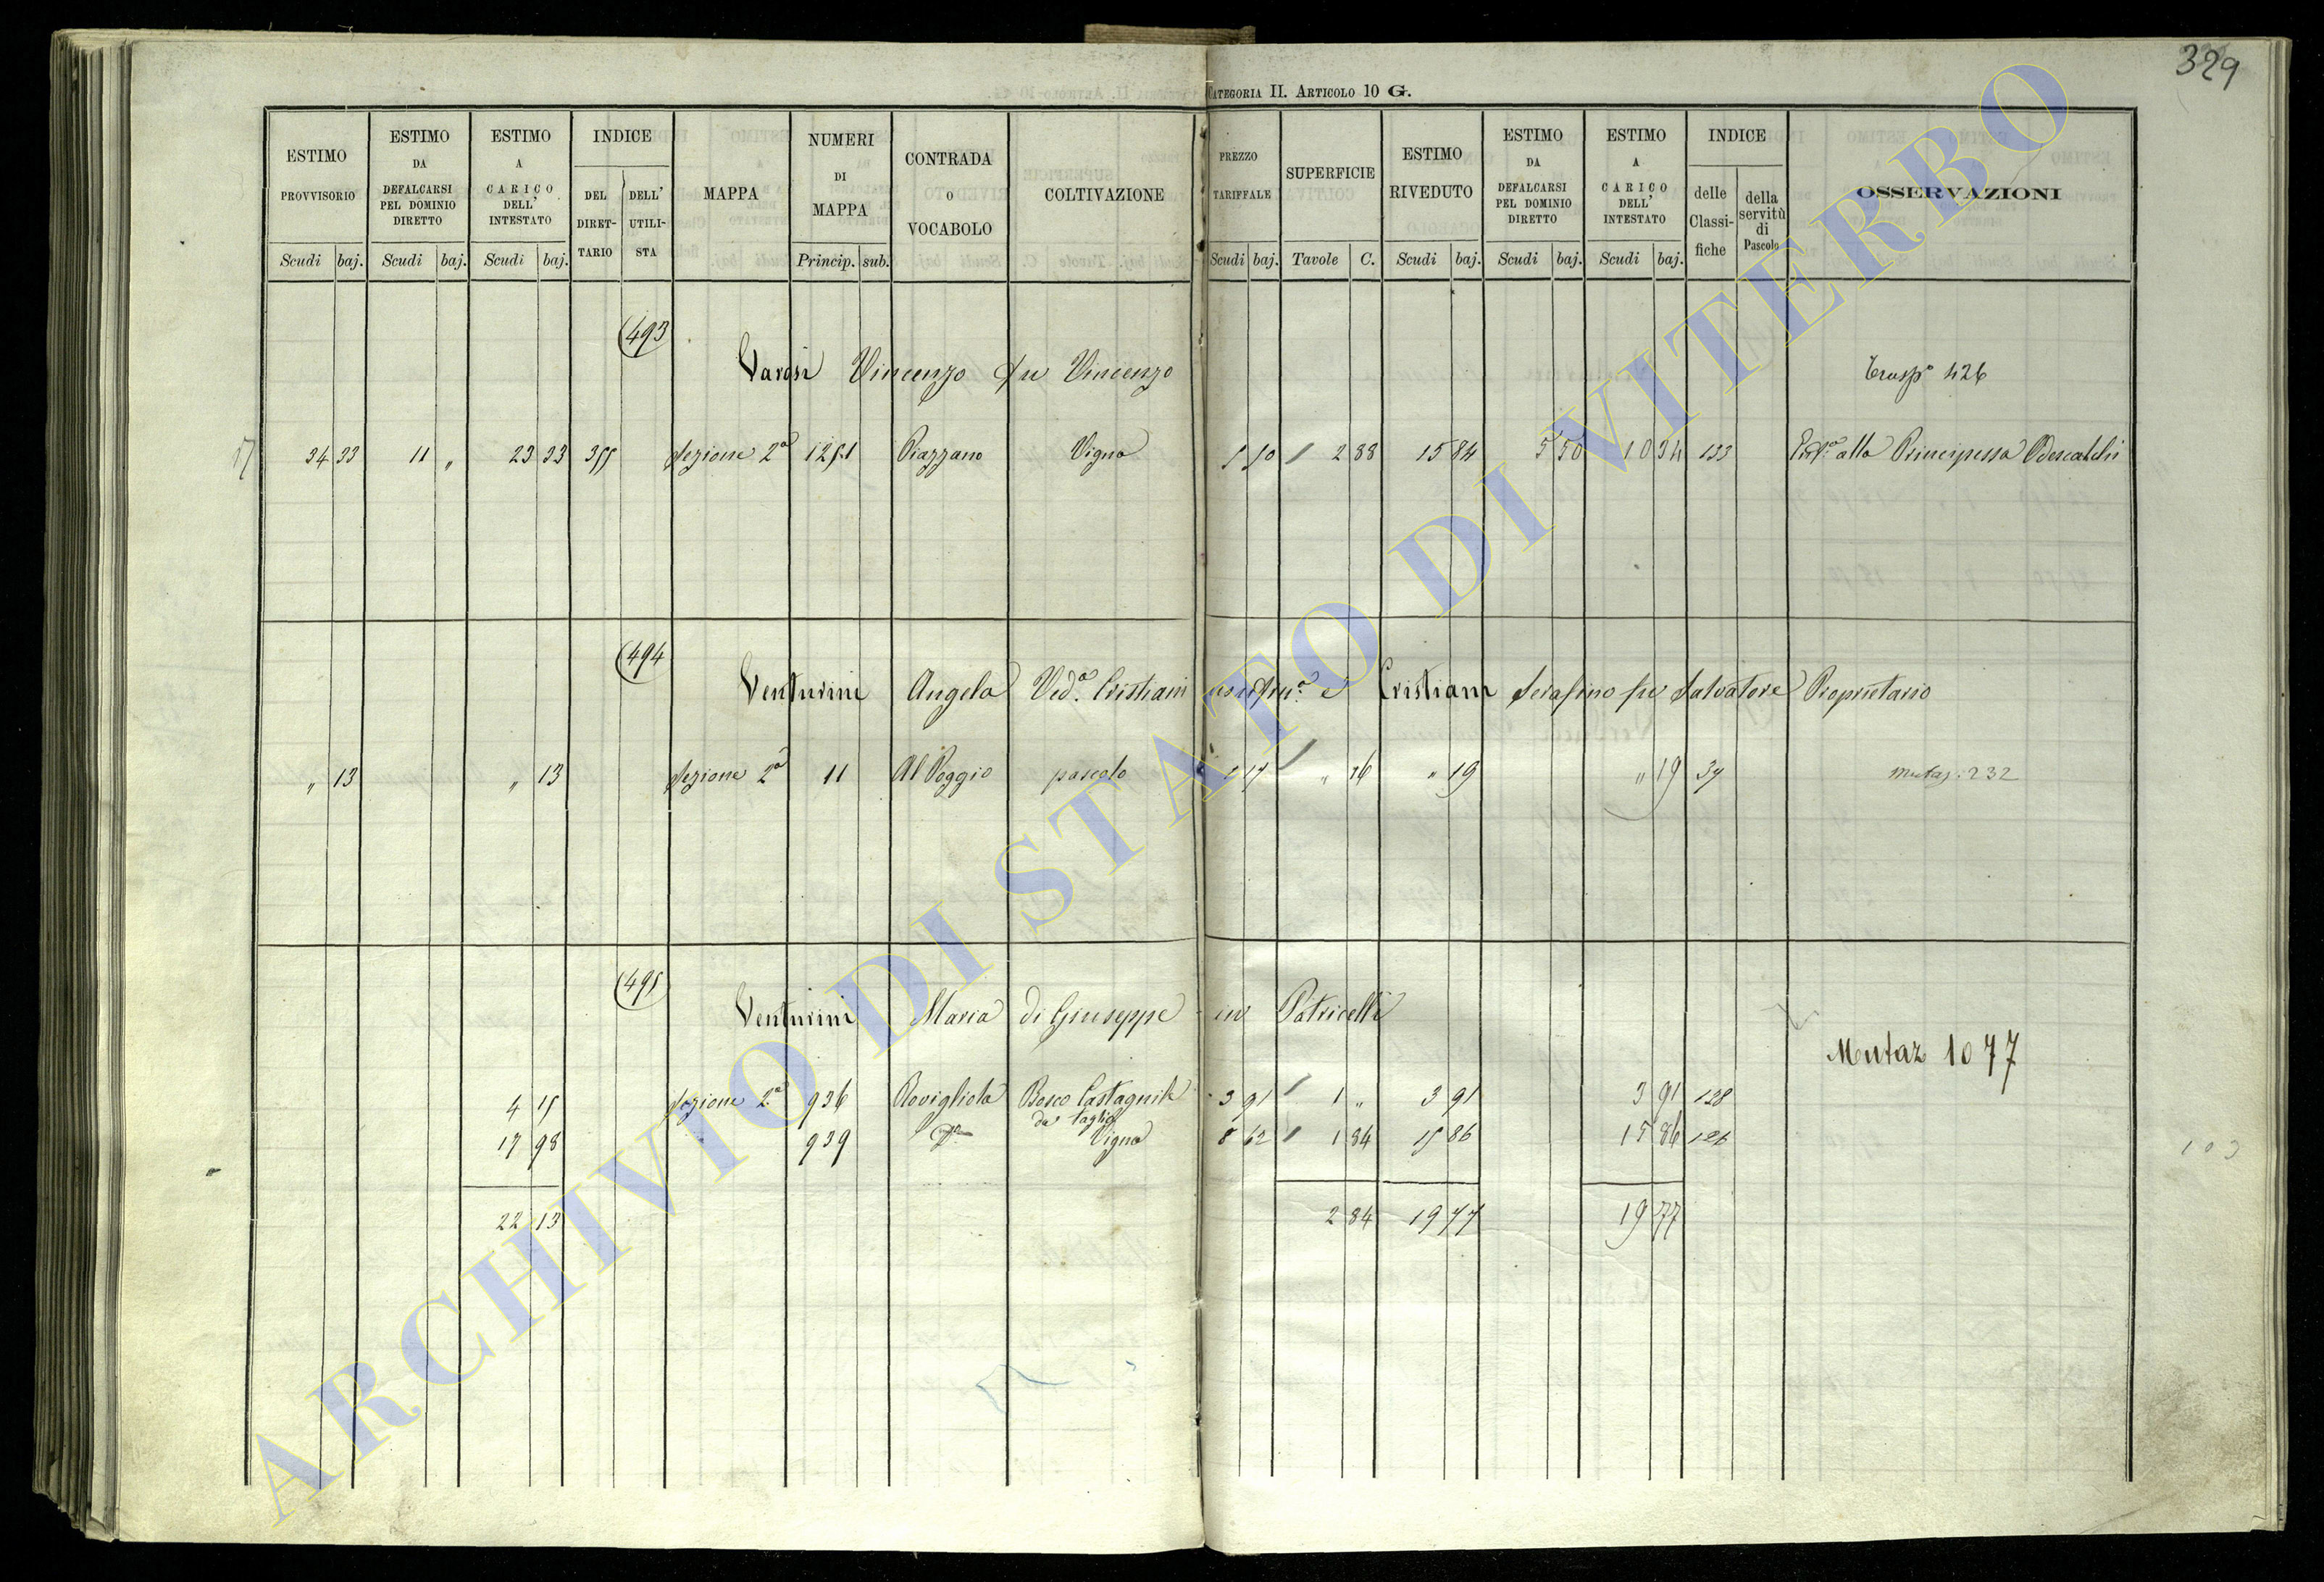 329
CATEGORIA II. ARTICOLO 10 G.
ESTIMO PROVVISORIO
ESTIMO DA DEFALCARSI PEL DOMINIO DIRETTO
ESTIMO A CARICO DELL' INTESTATO
INDICE
DEL DIRETTARIO
DELL' UTILISTA
MAPPA
NUMERI DI MAPPA
CONTRADA O VOCABOLO
COLTIVAZIONE
PREZZO TARIFFALE
SUPERFICIE
ESTIMO RIVEDUTO
ESTIMO DA DEFALCARSI PEL DOMINIO DIRETTO
ESTIMO A CARICO DELL' INTESTATO
INDICE
delle Classifiche
della servitù di Pascolo
OSSERVAZIONI
Scudi baj. Scudi baj. Scudi baj. Princip. sub. Scudi baj. Tavole C. Scudi baj. Scudi baj. Scudi baj.
493
Varosi Vincenzo fu Vincenzo
Trasp° 426
34 33 11 „ 23 33 355 Sezione 2ª 1251 Piazzano Vigna 5 50 2 88 15 84 5 50 10 34 133 alla Principessa Odescalchi
494
Venturini Angela Ved.ª Cristiani usufru.ª e Cristiani Serafino fu Salvatore Proprietario
„ 13 „ 13 Sezione 2ª 11 Al Poggio pascolo 1 17 „ 16 „ 19 „ 19 37 mutaz. 232
495
Venturini Maria di Giuseppe in Patricelli
Mutaz 1077
4 15 Sezione 2ª 936 Rovigliola Bosco Castagnile da taglio 3 91 1 „ 3 91 3 91 128
17 98 939 dº Vigna 8 62 1 84 15 86 15 86 126
103
22 13 2 84 19 77 19 77
ARCHIVIO DI STATO DI VITERBO